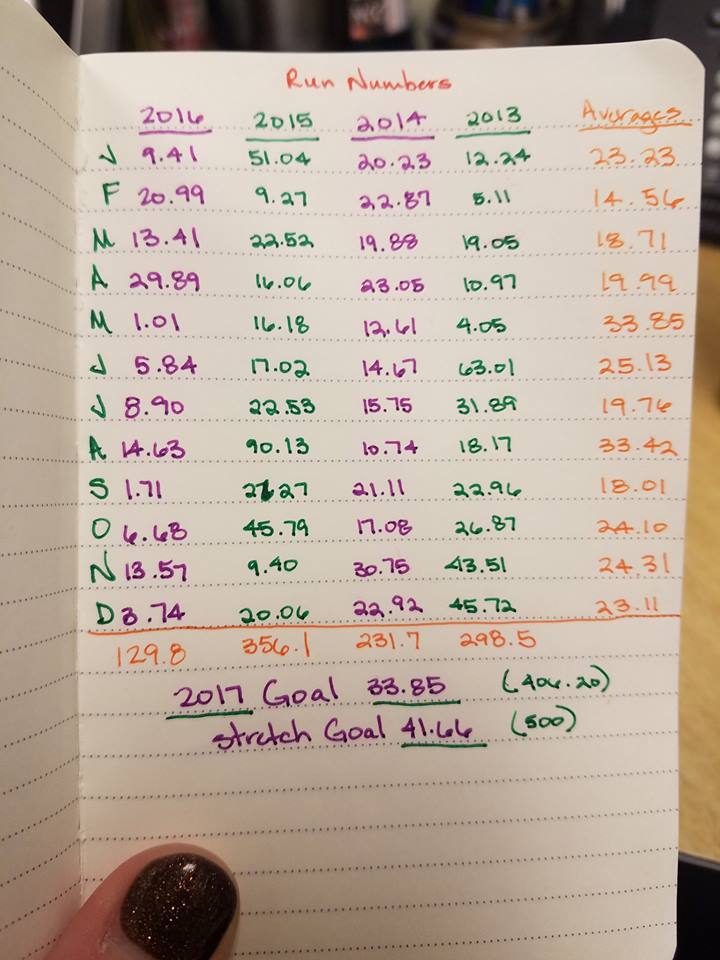 Run Numbers
2016 2015 2014 2013 Averages
J 9.41 51.04 20.23 12.24 23.23
F 20.99 9.27 22.87 5.11 14.56
M 13.41 22.52 19.88 19.05 18.71
A 29.89 16.06 23.05 10.97 19.99
M 1.01 16.18 12.61 4.05 33.85
J 5.84 17.02 14.67 63.01 25.13
J 8.90 22.53 15.75 31.89 19.76
A 14.63 90.13 10.74 18.17 33.42
S 1.71 21.11 22.96 18.01
O 6.68 45.79 17.08 26.87 24.10
N 13.57 9.40 30.75 43.51 24.31
D 3.74 20.06 22.92 45.72 23.11
129.8 356.1 231.7 298.5
2017 Goal 33.85 (406.20)
stretch Goal 41.66 (500)